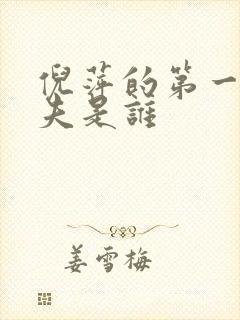 倪萍的第一
夫是誰
姜雪梅